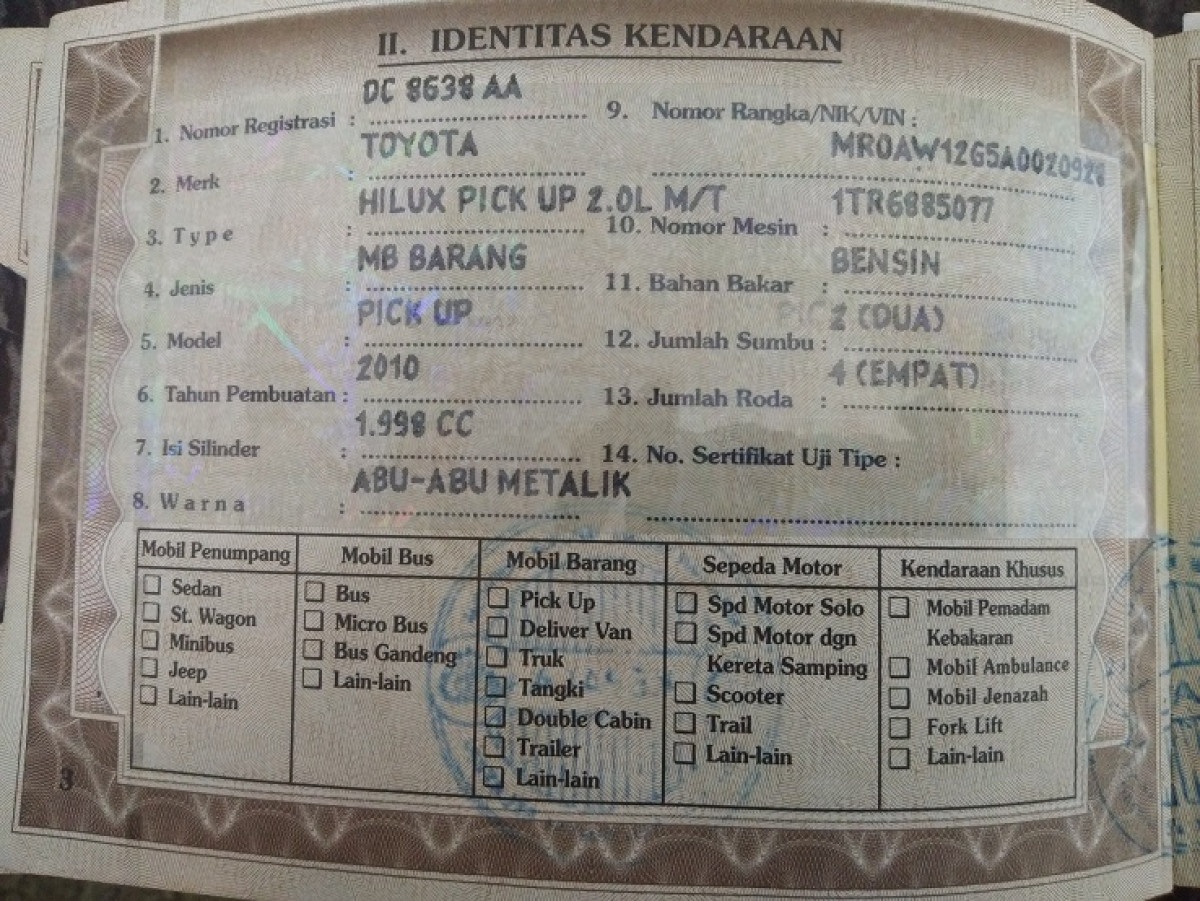 II. IDENTITAS KENDARAAN
DC 8638 AA
1. Nomor Registrasi :
TOYOTA
2. Merk :
HILUX PICK UP 2.0L M/T
3. Type :
MB BARANG
4. Jenis :
PICK UP
5. Model :
2010
6. Tahun Pembuatan :
1.998 CC
7. Isi Silinder :
ABU-ABU METALIK
8. Warna :
9. Nomor Rangka/NIK/VIN :
MR0AW12G5A0020928
1TR6885077
10. Nomor Mesin :
BENSIN
11. Bahan Bakar :
2 (DUA)
12. Jumlah Sumbu :
4 (EMPAT)
13. Jumlah Roda :
14. No. Sertifikat Uji Tipe :
Mobil Penumpang
Sedan
St. Wagon
Minibus
Jeep
Lain-lain
Mobil Bus
Bus
Micro Bus
Bus Gandeng
Lain-lain
Mobil Barang
Pick Up
Deliver Van
Truk
Tangki
Double Cabin
Trailer
Lain-lain
Sepeda Motor
Spd Motor Solo
Spd Motor dgn
Kereta Samping
Scooter
Trail
Lain-lain
Kendaraan Khusus
Mobil Pemadam
Kebakaran
Mobil Ambulance
Mobil Jenazah
Fork Lift
Lain-lain
3